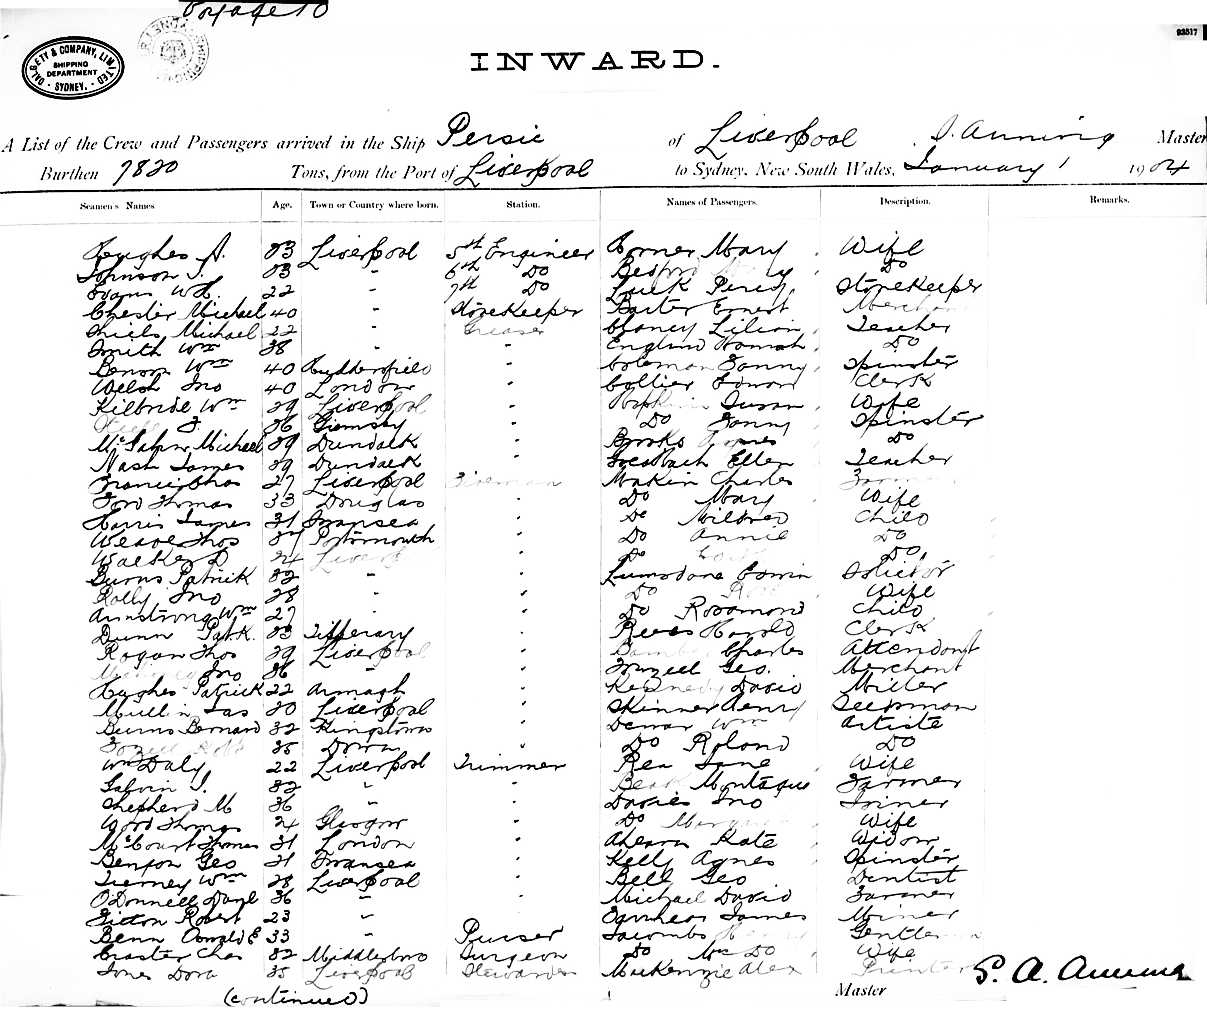 Voyage 10
DALGETY & COMPANY, LIMITED
SHIPPING DEPARTMENT
SYDNEY.
93517
INWARD.
A List of the Crew and Passengers arrived in the Ship Persic of Liverpool J. Anning Master
Burthen 7820 Tons, from the Port of Liverpool to Sydney, New South Wales, January 1 1904
Seamen's Names Age. Town or Country where born. Station. Names of Passengers. Description. Remarks.
Hughes A. 33 Liverpool 5th Engineer Horner Mary Wife
Johnson J. 33 " 6th Do Bedford Do
Evans W.H. 22 " 7th Do Luck Percy Storekeeper
Chester Michael 40 " Storekeeper Baxter Ernest Merchan
Shiels Michael 22 " Greaser Clancy Lilian Teacher
Smith Wm 38 " " England Hannah Do
Benson Wm 40 Huddersfield " Coleman Fanny Spinster
Welsh Jno 40 London " Collier Edwin Clerk
Kilbride Wm 39 Liverpool " Hopkins Susan Wife
36 Grimsby " Do Fanny Spinster
McGahan Michael 39 Dundalk " Brooks Do
Nash James 39 Dundalk " Ellen Teacher
Francis Thos 27 Liverpool Fireman Makin Charles Farmer
Ford Thomas 33 Douglas " Do Mary Wife
Harris James 31 Swansea " Do Mildred Child
Weaver Thos 37 Portsmouth " Do Annie Do
Walker D 24 Liverp " Do Do
Burns Patrick 32 " " Lumsdane Edwin Solicitor
Rolly Jno 28 " " Do Wife
Armstrong Wm 27 " " Do Rosamond Child
Dunn Patk. 33 Tipperary " Rees Harold Clerk
Rogan Thos 39 Liverpool " Charles Attendant
Jno 36 " " Geo. Merchant
Hughes Patrick 22 Armagh " Kennedy David Miller
Mullin Jas 30 Liverpool " Skinner Henry Seedsman
Burns Bernard 32 Kingstown " Demar Wm Artiste
35 Down " Do Roland Do
Wm Daly 22 Liverpool Trimmer Rea Jane Wife
Galvin J. 32 " " Beak Montague Farmer
Shepherd M 36 " " Davies Jno Joiner
Word Thomas 24 Glasgow " Do Wife
McCourt Thomas 31 London " Ahearn Kate Widow
Benson Geo 31 Swansea " Kelly Agnes Spinster
Tierney Wm 28 Liverpool " Bell Geo Dentist
O'Donnell Danl 36 " " Michael David Farmer
Sitton Robert 23 " " James Miner
Benn Oswald E 33 " Purser Jacombs Gentleman
Craster Chas 32 Middlesboro Surgeon Do Mrs Do Wife
Jones Dora 35 Liverpool Stewardess MacKenzie Alex Printer
(continued)
Master